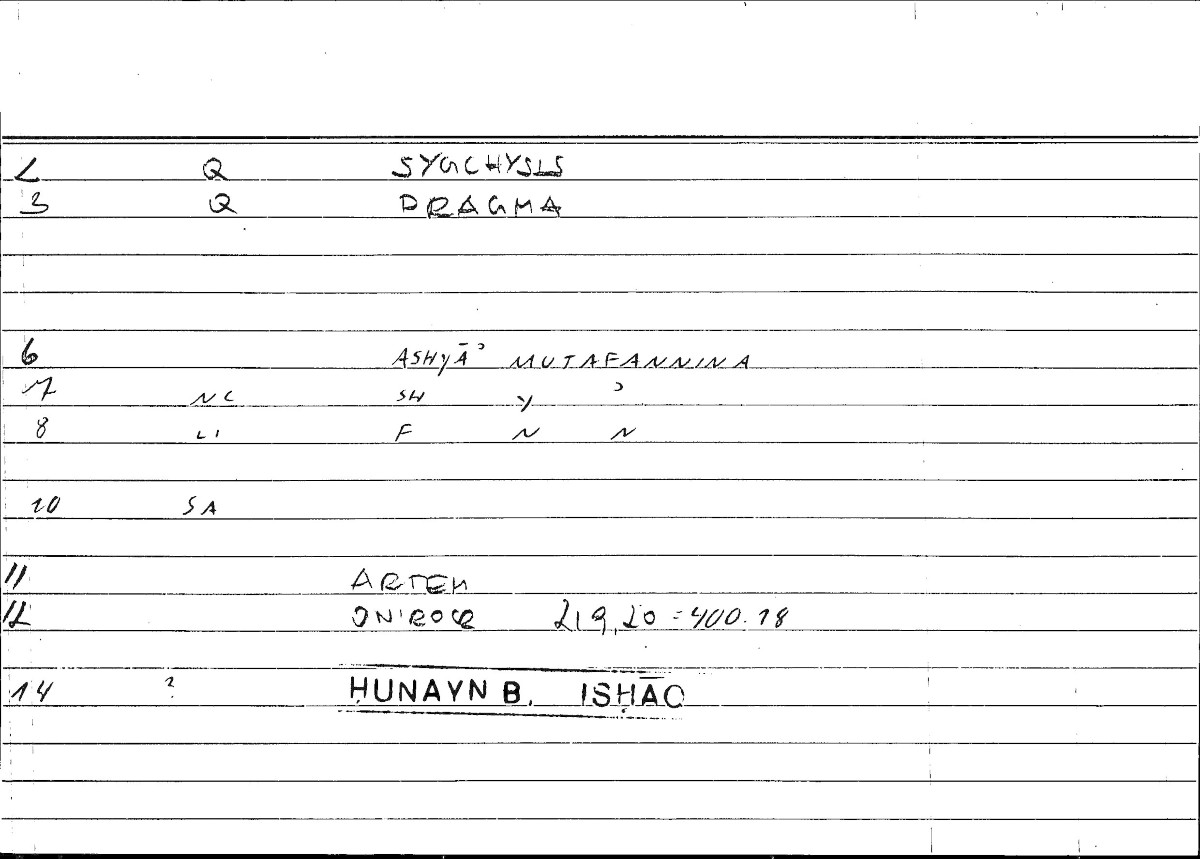 2 Q SYGCHYSIS
3 Q PRAGMA
6 ASHYĀʾ MUTAFANNINA
7 NC SH Y ʾ
8 LI F N N
10 SA
11 ARTEM
12 ONIROCR 219,20 = 400.18
14 ? ḤUNAYN B. ISḤĀQ